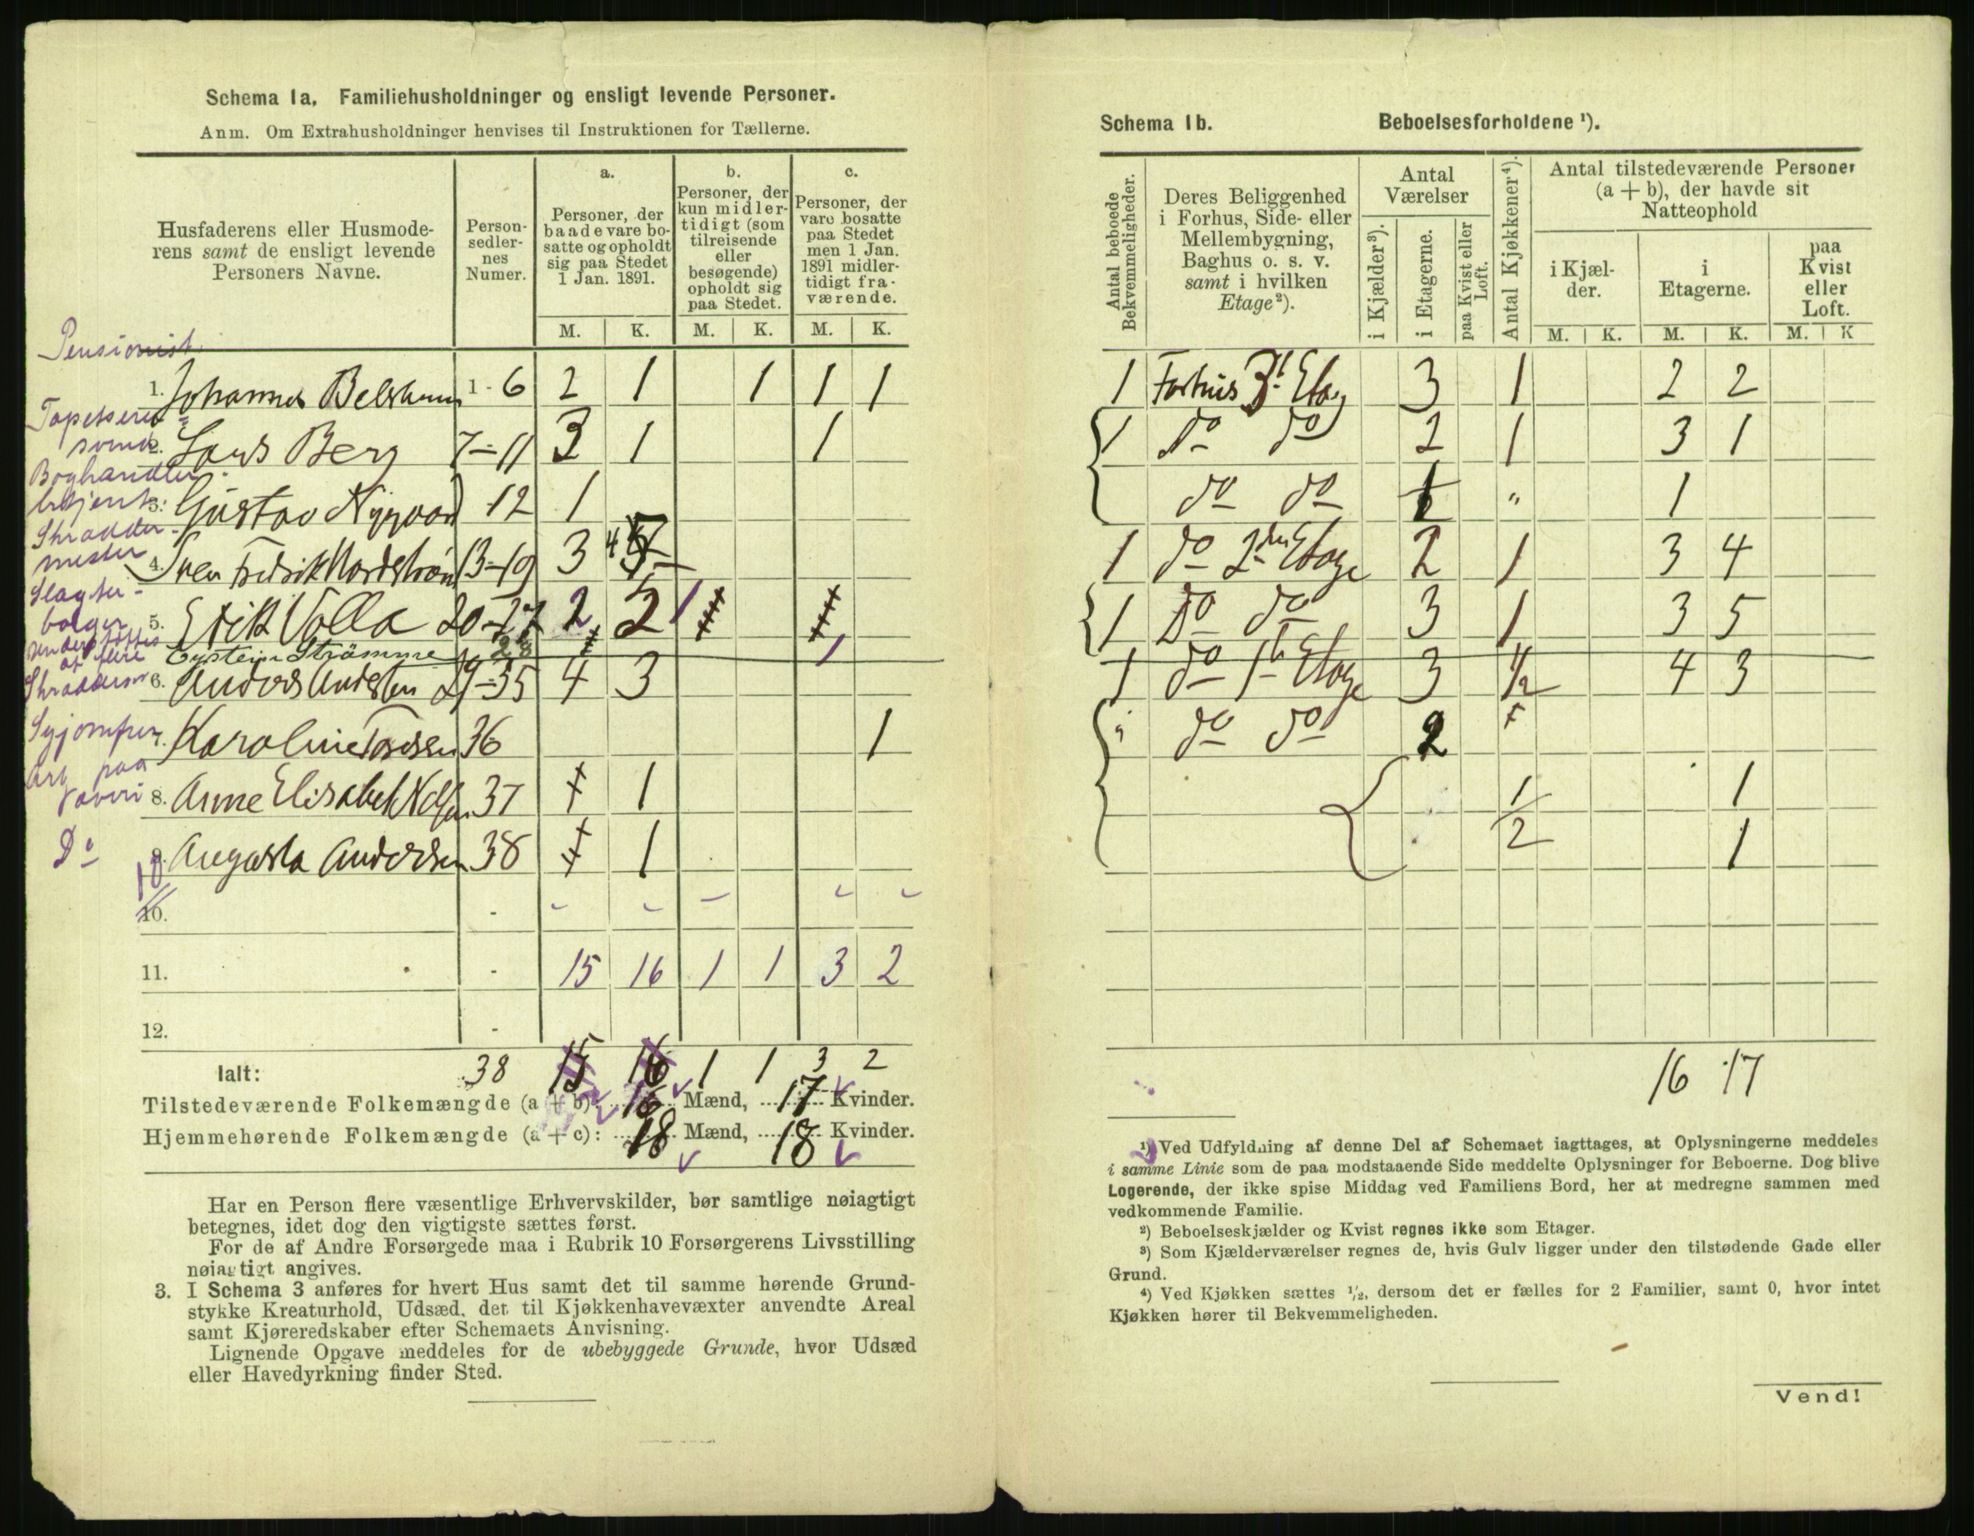 Schema 1a. Familiehusholdninger og ensligt levende Personer.
Anm. Om Extrahusholdninger henvises til Instruktionen for Tællerne.
Husfaderens eller Husmode-
rens samt de ensligt levende
Personers Navne.
Person-
sedler-
nes
Numer.
a.
Personer, der
baade vare bo-
satte og opholdt
sig paa Stedet
1 Jan. 1891.
b.
Personer, der
kun midler-
tidigt (som
tilreisende
eller
besøgende)
opholdt sig
paa Stedet.
c.
Personer, der
vare bosatte
paa Stedet
men 1 Jan.
1891 midler-
tidigt fra-
værende.
M. K. M. K. M. K.
Pensionist
1. Johannes 1-6 2 1 1 1 1
2. Lars Berg 7-11 3 1 1
Boghandler
3. Gustav 12 1
Skrædder
mester
4. Sven Fredrik 13-19 3 4
Slagter
5. Erik Volla 20-27 2 2 1
Eystein Strömme 28 1
6. Anders 29-35 4 3
7. Karoline 36 1
Arb paa
8. Anne Elisabeth 37 1
Do
9. Augusta Andersen 38 1
10.
11. 15 16 1 1 3 2
12.
Ialt: 38 15 16 1 1 3 2
Tilstedeværende Folkemængde (a + b): 16 Mænd, 17 Kvinder.
Hjemmehørende Folkemængde (a + c): 18 Mænd, 18 Kvinder.
Har en Person flere væsentlige Erhvervskilder, bør samtlige nøiagtigt
betegnes, idet dog den vigtigste sættes først.
For de af Andre Forsørgede maa i Rubrik 10 Forsørgerens Livsstilling
nøiagtigt angives.
3. I Schema 3 anføres for hvert Hus samt det til samme hørende Grund-
stykke Kreaturhold, Udsæd, det til Kjøkkenhavevæxter anvendte Areal
samt Kjøreredskaber efter Schemaets Anvisning.
Lignende Opgave meddeles for de ubebyggede Grunde, hvor Udsæd
eller Havedyrkning finder Sted.
Schema 1b. Beboelsesforholdene ¹).
Antal beboede
Bekvemmeligheder.
Deres Beliggenhed
i Forhus, Side- eller
Mellembygning,
Baghus o. s. v.
samt i hvilken
Etage²).
Antal
Værelser
i Kjælder³).
i Etagerne.
paa Kvist eller
Loft.
Antal Kjøkkener⁴).
Antal tilstedeværende Personer
(a + b), der havde sit
Natteophold
i Kjæl-
der.
i
Etagerne.
paa
Kvist
eller
Loft.
M. K. M. K. M. K
1 Forhus 3d Etag 3 1 2 2
1 do do 2 1 3 1
do do 1 " 1
1 do 2den Etage 2 1 3 4
1 do do 3 1 3 5
1 do 1st Etage 3 1/2 4 3
do do 2
1/2 1
1
16 17
¹) Ved Udfyldning af denne Del af Schemaet iagttages, at Oplysningerne meddeles
i samme Linie som de paa modstaaende Side meddelte Oplysninger for Beboerne. Dog blive
Logerende, der ikke spise Middag ved Familiens Bord, her at medregne sammen med
vedkommende Familie.
²) Beboelseskjælder og Kvist regnes ikke som Etager.
³) Som Kjælderværelser regnes de, hvis Gulv ligger under den tilstødende Gade eller
Grund.
⁴) Ved Kjøkken sættes ¹/₂, dersom det er fælles for 2 Familier, samt 0, hvor intet
Kjøkken hører til Bekvemmeligheden.
Vend!